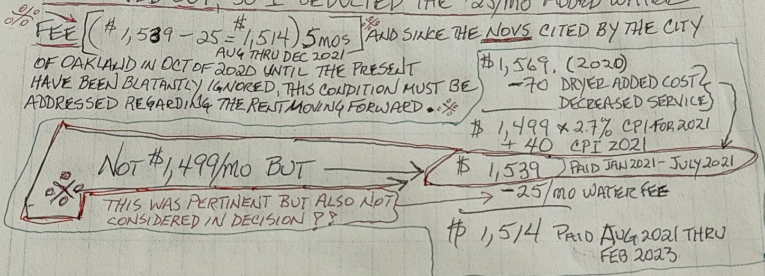 FEE [($1,539 - 25 = $1,514) 5 mos]
AUG THRU DEC 2021
AND SINCE THE NOVS CITED BY THE CITY
OF OAKLAND IN OCT OF 2020 UNTIL THE PRESENT
HAVE BEEN BLATANTLY IGNORED, THIS CONDITION MUST BE
ADDRESSED REGARDING THE RENT MOVING FORWARD.
$1,569. (2020)
-70 DRYER ADDED COST
DECREASED SERVICE)
$1,499 x 2.7% CPI FOR 2021
+ 40 CPI 2021
NOT $1,499/MO BUT
$ 1,539 PAID JAN 2021 - JULY 2021
THIS WAS PERTINENT BUT ALSO NOT
CONSIDERED IN DECISION ??
-25/MO WATER FEE
$ 1,514 PAID AUG 2021 THRU
FEB 2023